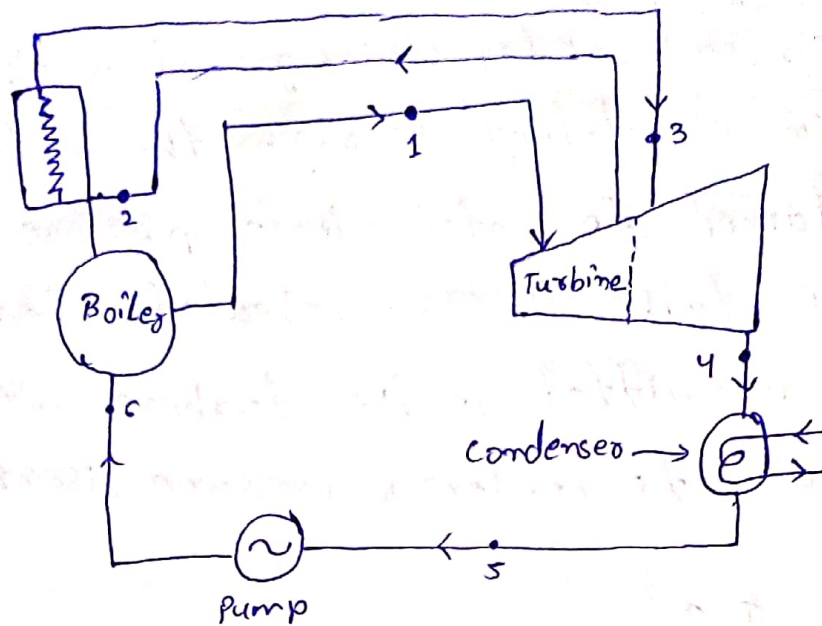 3
1
2
Turbine
Boiler
4
6
Condenser
5
Pump